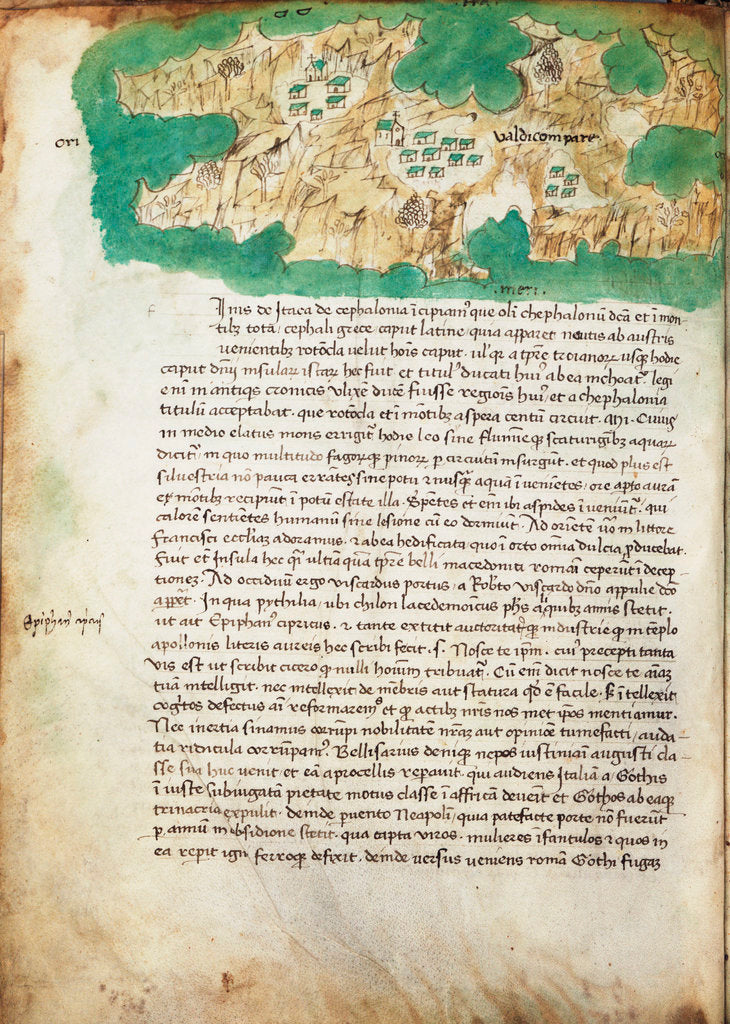 ori
valdicompare
meri.
finis de Itaca de cephalonia īcipiam' que oli chephalonia dc̄a et ī mon
tibꝫ tota, cephali grece caput latine, quia apparet nautis ab austris
uenientibꝫ rotōda velut hoīs caput. ul' qr a tp̄re troianoꝝ usqꝫ hodie
caput dn̄ii insulaꝝ istaꝝ hec fuit et titul' ducati hui' ab ea inchoat'. legi
eni in antiqs cronicis ulixē ducē fuisse regiois hui' et a chephalonia
titulū acceptabat. que rotōda et ī mōtibꝫ aspera centū circuit. Mi. Cuius
in medio elatus mons errigit' hodie leo sine flumineqꝫ scaturigībꝫ aquaꝝ
dicit', in quo multitudo fagoꝝqꝫ pinoꝝ p circuitū insurgunt. et quod plus est
silvestria nō pauca errātes sine potu et nusqꝫ aquā īuenietes, ore apto aurā
ex mōtibꝫ recipiūt ī potū estate illa. Spētes et eni ibi aspides īueniūt'. qui
calorē sentiētes humanū sine lesione cū eo dormiut. Ad oriētē uo in littore
Francisci ecclīaꝫ adoramus. et ab ea hedificata quo ī orto omia dulcia pducebat.
Fuit et Insula hec qsi ultia qua tp̄re belli macedonici romāi ceperūt ī decep
tionez. Ad occiduū ergo viscardus portus, a Robto viscardo dn̄o appulie dc̄o
appet. In qua pythilia, ubi chilon lacedemoicus phs aliquibꝫ annis stetit.
ut ait Epiphan' cipricus. et tante extitit auctoritatqꝫ industrie qꝫ in tēplo
Epiphan' cipricus
apollonis literis aureis hec scribi fecit. s. Nosce te ipm. cui' precepti tanta
vis est ut scribit cicero qꝫ nulli hominū tribuat'. Cū enī dicit nosce te aiaꝫ
tuā intelligit. nec intellexit de mēbris aut statura qd ē facile. sꝫ ītellexit
cogītos defectus ai reformarem' et qꝫ actibꝫ nris nos met ipos mentiamur.
Nec inertia sinamus corrūpi nobilitatē nraꝫ aut opinioē tumefacti, auda
tia ridicula corrūpam'. Bellisarius deniqꝫ nepos iustiniāi augusti cla
sse sua huc venit et eā a procellis repauit. qui audiens Italiā a Gothis
ī iuste subiugatā pietate motus classe ī affricā deuēit et Gothos ab eaqꝫ
trinacria expulit. deinde puento Neapoli, quia patefacte porte nō fuerūt
p annū in obsidione stetit. qua capta viros. mulieres ifantulos et quos in
ea repit igni ferroqꝫ defixit. deinde versus veniens romā Gothi fugaꝫ